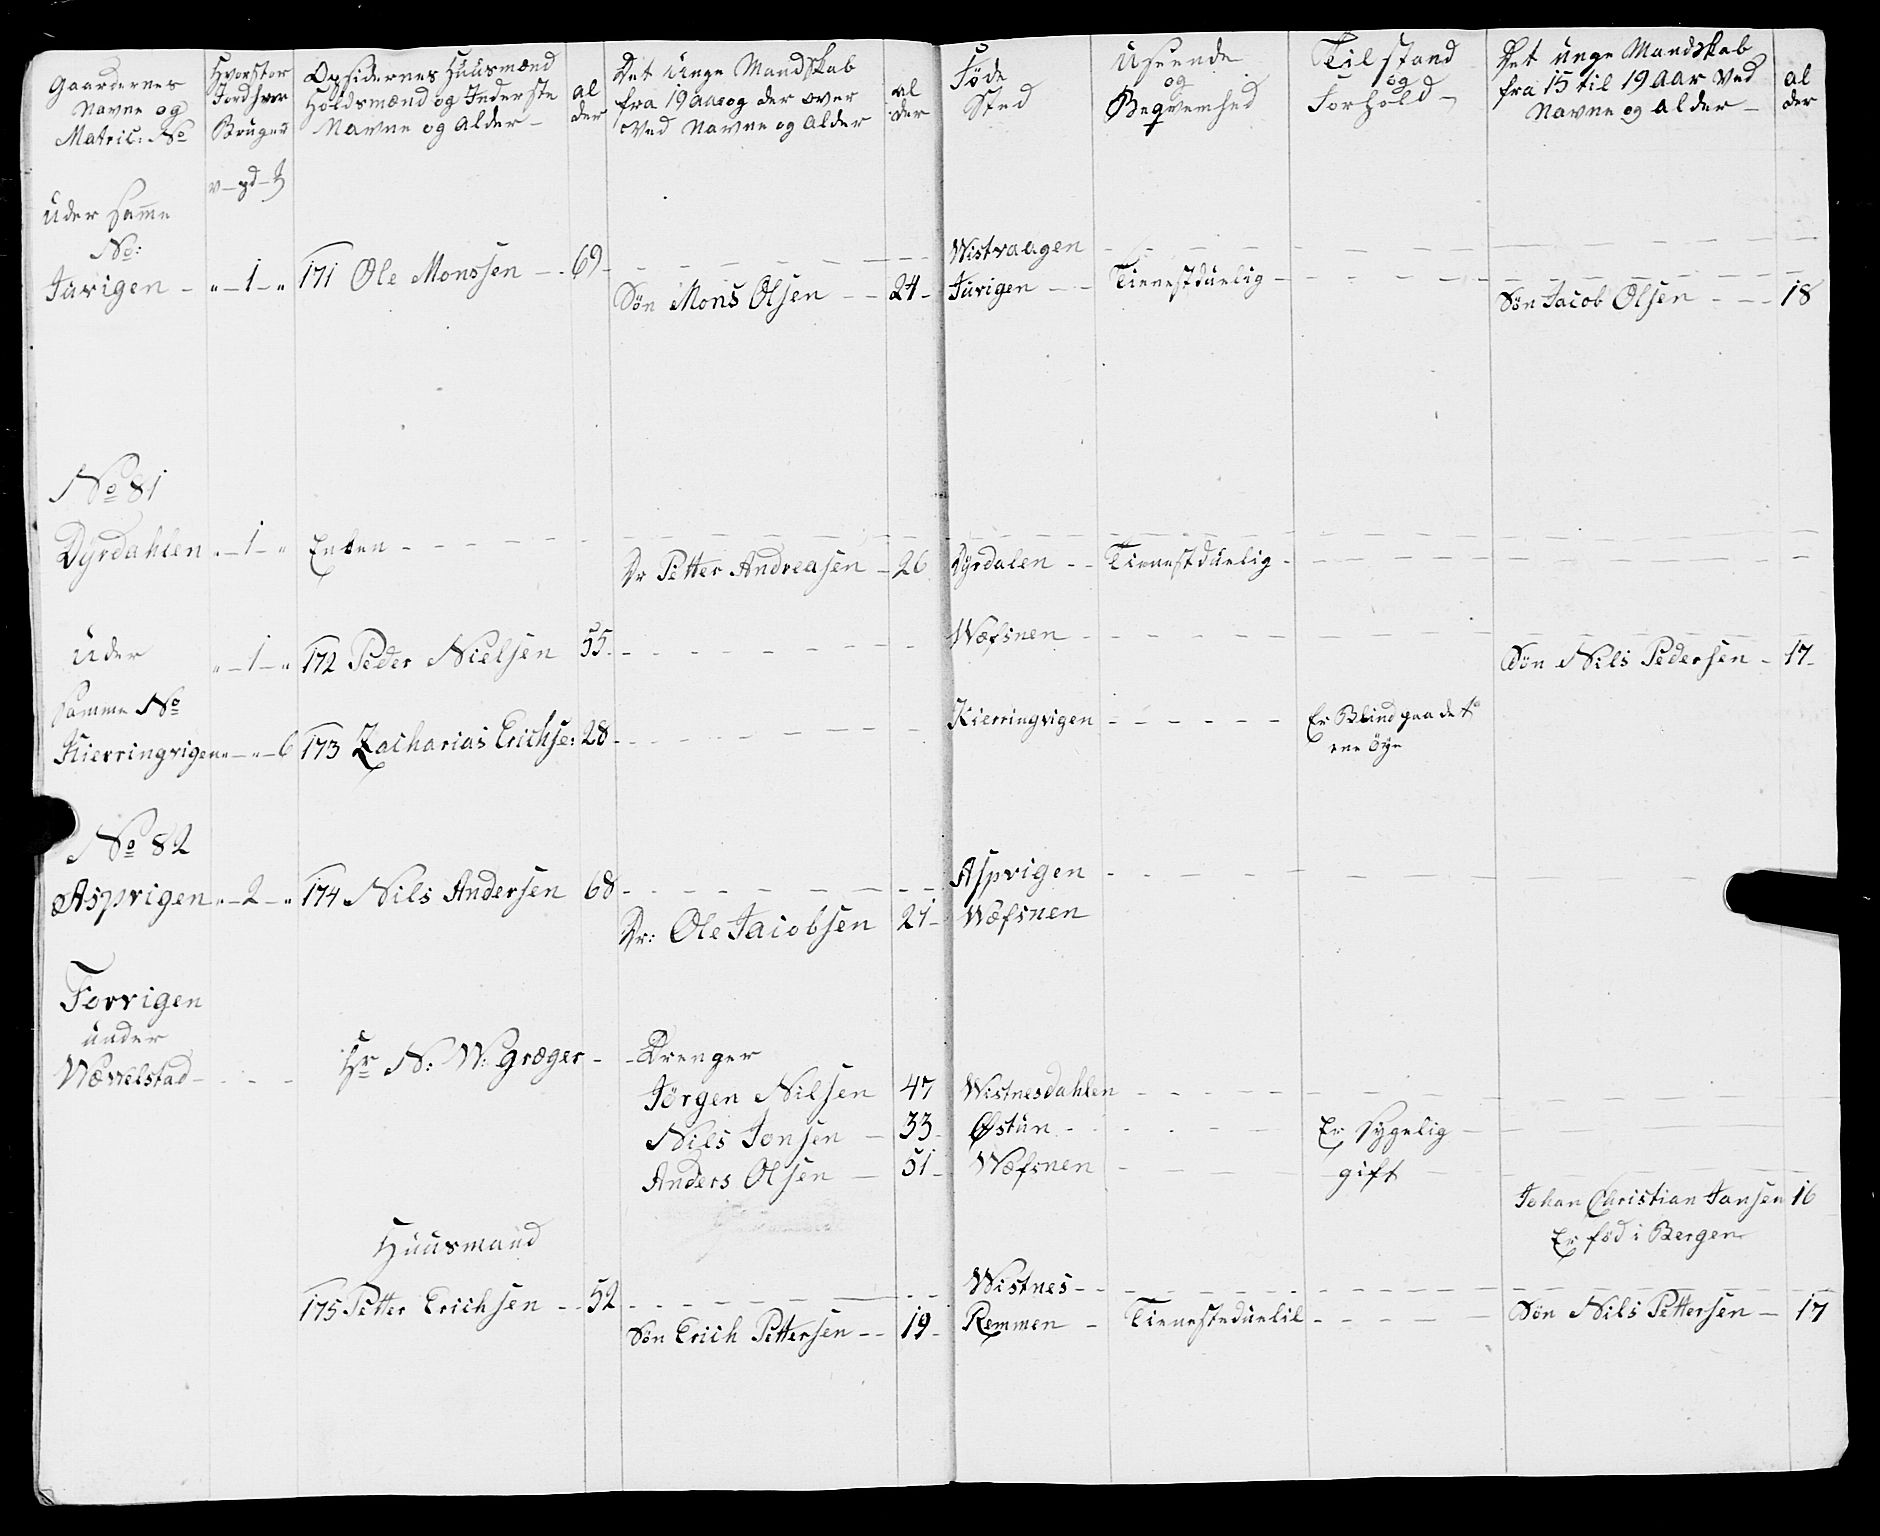 Gaardernes Navne og Matric: No
Hvorstor Jord hver Bruger
Opsidernes Huusmænd Holdsmænd og Inderste Navne og Alder
al der
Det unge Mandskab fra 19 Aar og der over Ved Navne og Alder
al der
Føde Sted
Useende og Beqvemhed
Tilstand og Forhold
Det unge Mandskab fra 15 til 19 Aar Ved Navne og Alder
al der
v - pd -
Uder samme
No:
Wistvaagen
Jurigen - " - 1 - " 171 Ole Monssen - 69
Søn Mons Olsen - 24 - Jurigen - Tienestdunlig - Søn Jacob Olsen - 18
No 81
Dÿrdahlen " - 1 - " Enken
Dr Petter Andreasen - 26 Dÿrdalen - Tienestdunlig
Uder " - 1 - " 172 Peder Nielsen 55 - Wefsnen
Søn Nils Pedersen - 17
samme No
Kierringvigen " - " - 6 173 Zacharias Erichse: 28 - Kierringvigen - Er Blind paa det
ene Øye
No 82
Aspvigen " - 2 - " 174 Nils Andersen 68 - Aspvigen
Dr: Ole Jacobsen 21 - Wefsnen
Forvigen
under
Wævelstad - Hr N: W: Græger - Drenger
Jörgen Nilsen 47 Wistnesdahlen
Nils Jonsen - 33 Østun - Er sygelig
Anders Olsen - 51 - Wefsnen - gift
Johan Christian Jansen 16
Er född i Bergen
Huusmand
175 Petter Erichsen - 52 - Wistnes
Søn Erich Pettersen - 19 - Remmen - Tienestedunlil - Søn Nils Pettersen - 17